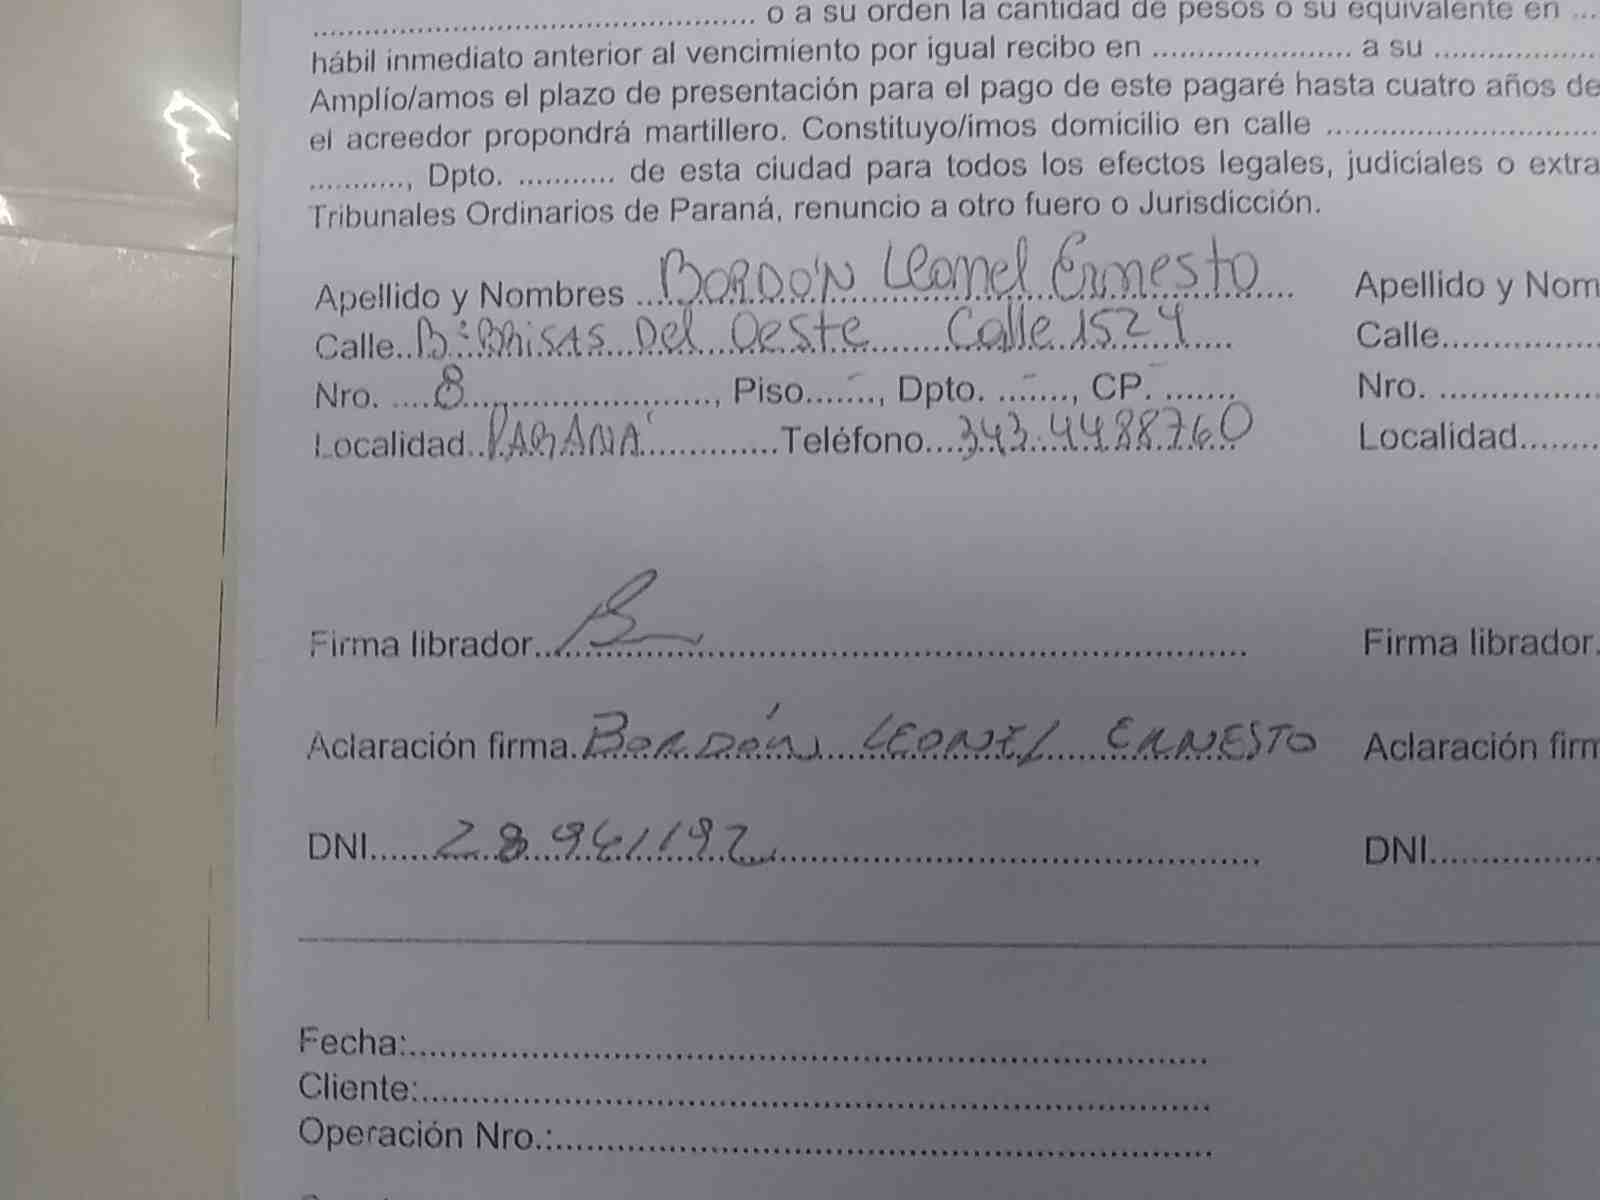 o a su orden la cantidad de pesos o su equivalente en ...
hábil inmediato anterior al vencimiento por igual recibo en ...................... a su ..................
Amplío/amos el plazo de presentación para el pago de este pagaré hasta cuatro años de
el acreedor propondrá martillero. Constituyo/imos domicilio en calle ..............................
..........., Dpto. ........... de esta ciudad para todos los efectos legales, judiciales o extra
Tribunales Ordinarios de Paraná, renuncio a otro fuero o Jurisdicción.
Apellido y Nombres BORDÓN Leonel Ernesto Apellido y Nom
Calle B: BRISAS Del Oeste Calle 1524 Calle
Nro. 8, Piso - , Dpto. - , CP. - Nro.
Localidad PARANÁ Teléfono 343 4488760 Localidad
Firma librador Firma librador
Aclaración firma. BORDÓN LEONEL ERNESTO Aclaración firm
DNI 28961192 DNI
Fecha:
Cliente:
Operación Nro.: